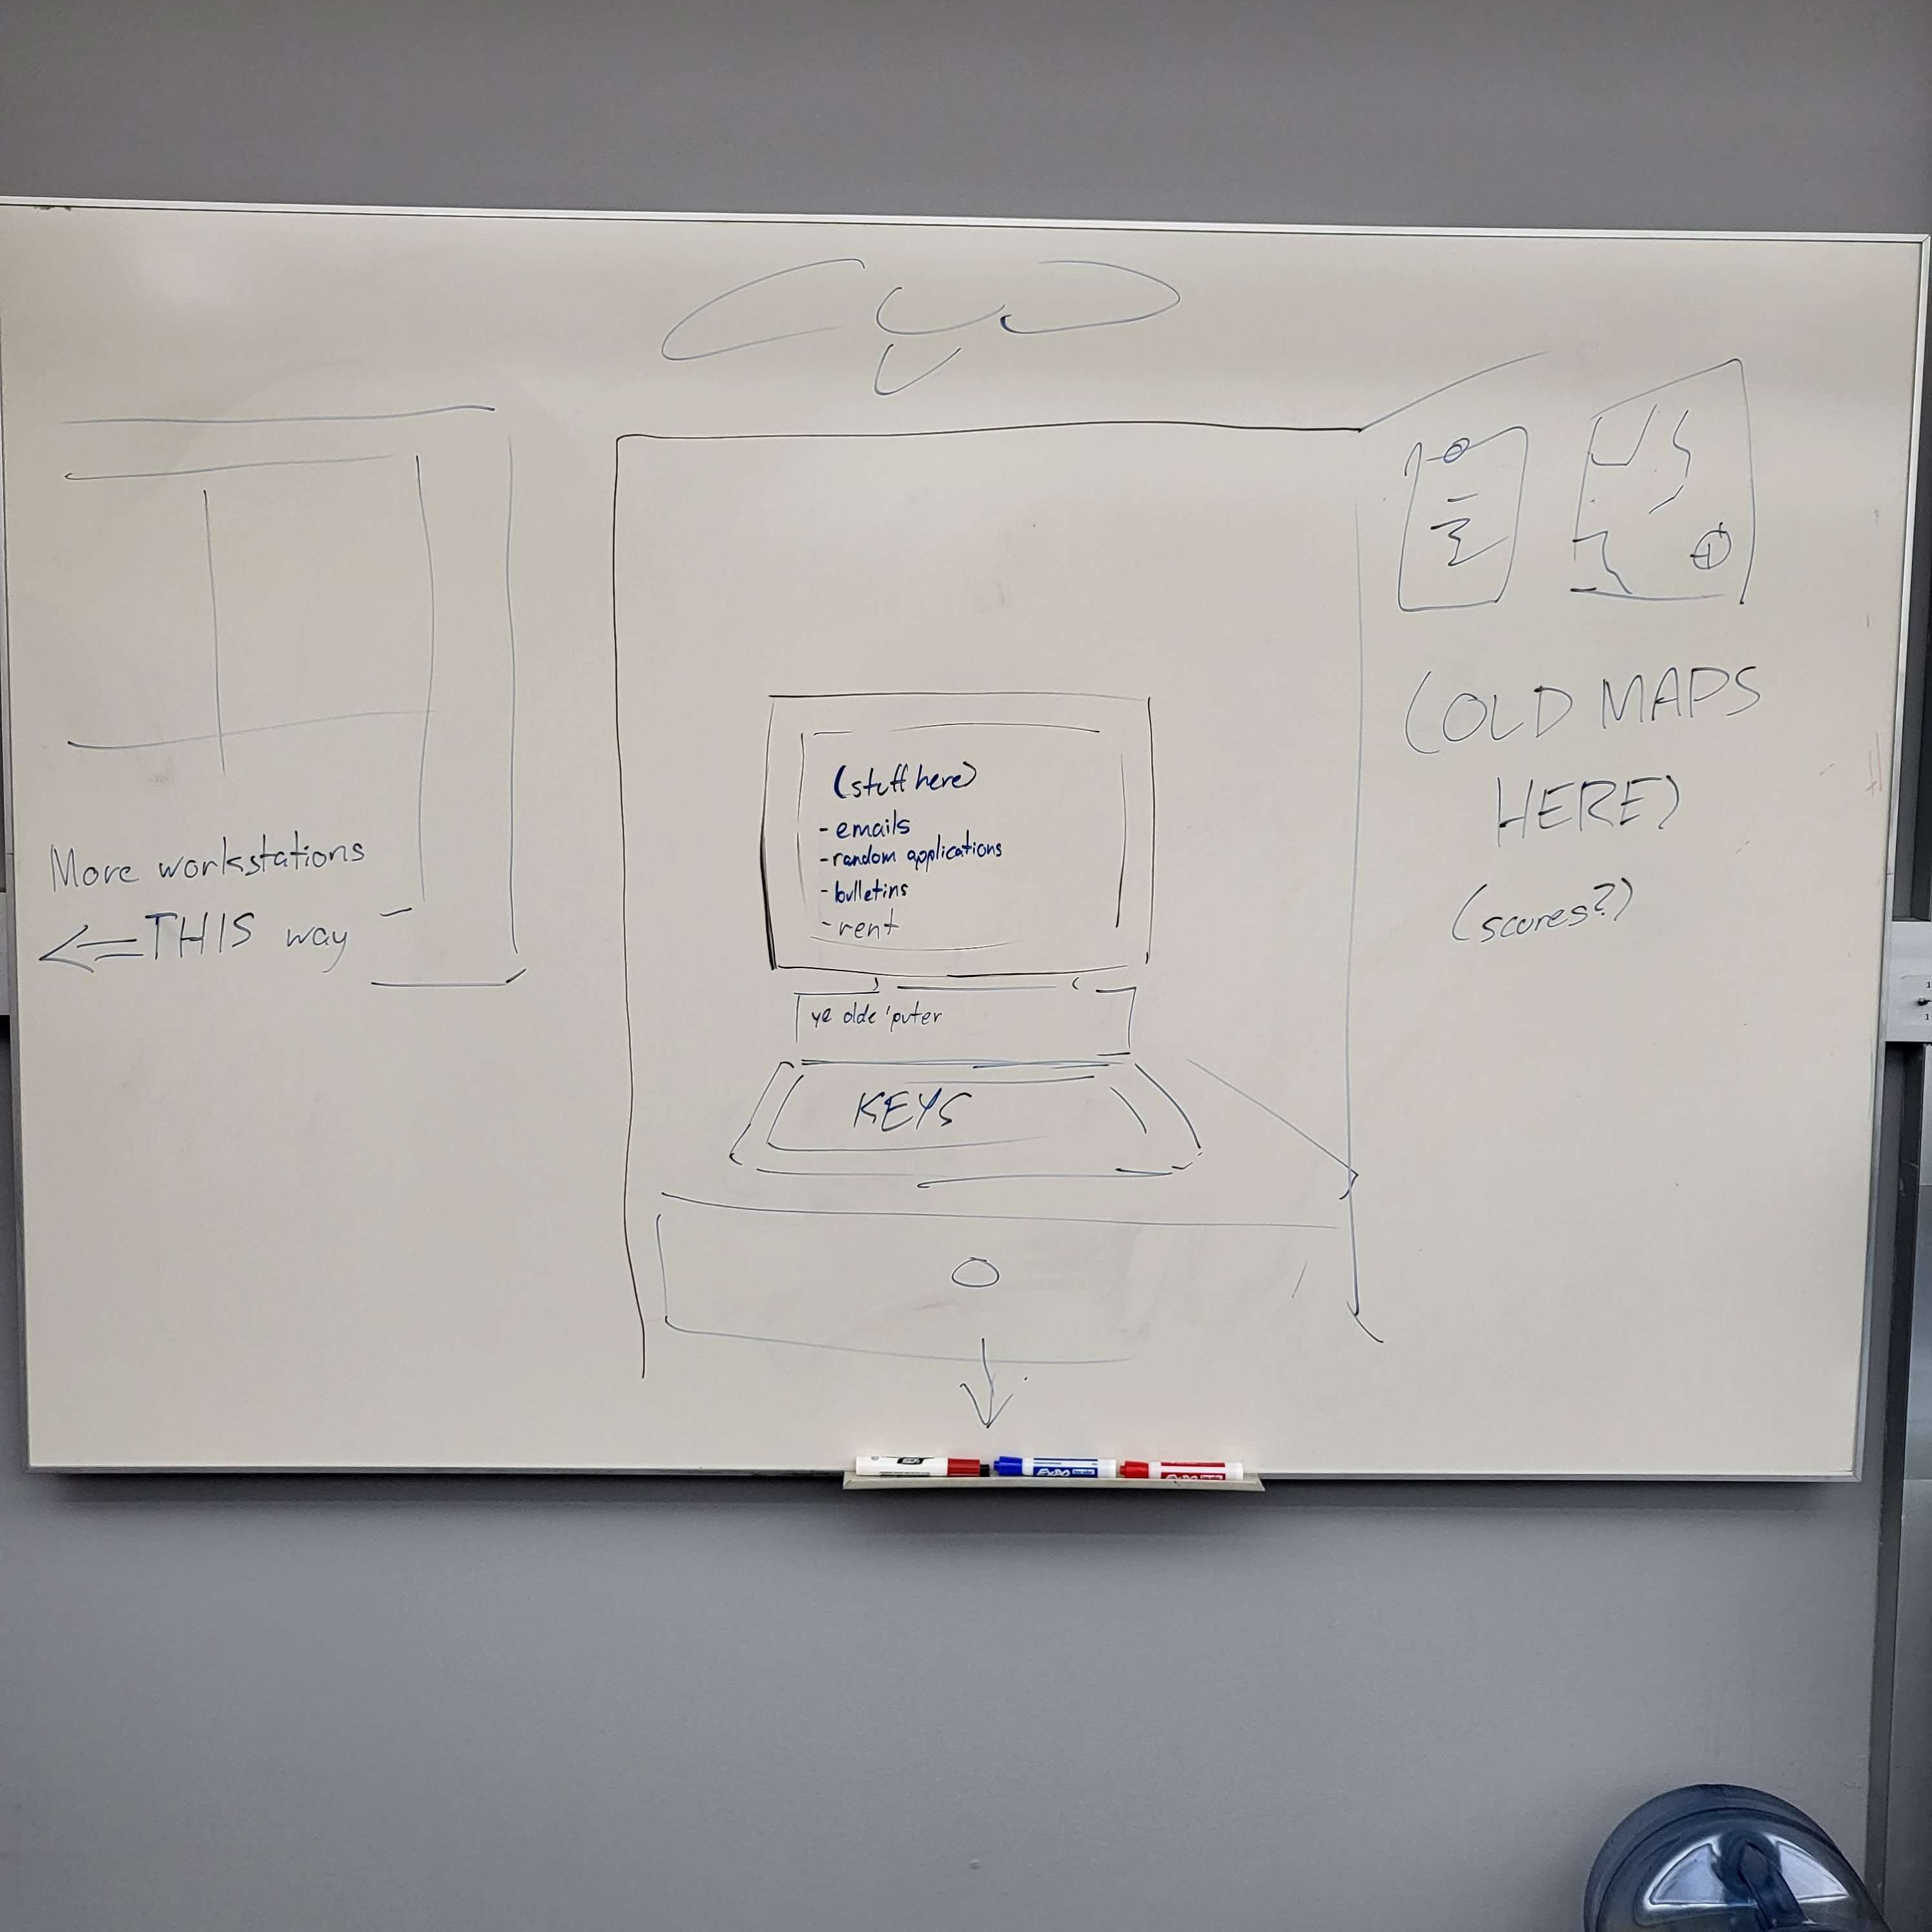 More workstations
THIS way
(stuff here)
- emails
- random applications
- bulletins
- rent
ye olde 'puter
KEYS
(OLD MAPS
HERE)
(scores?)
EXPO
EXPO